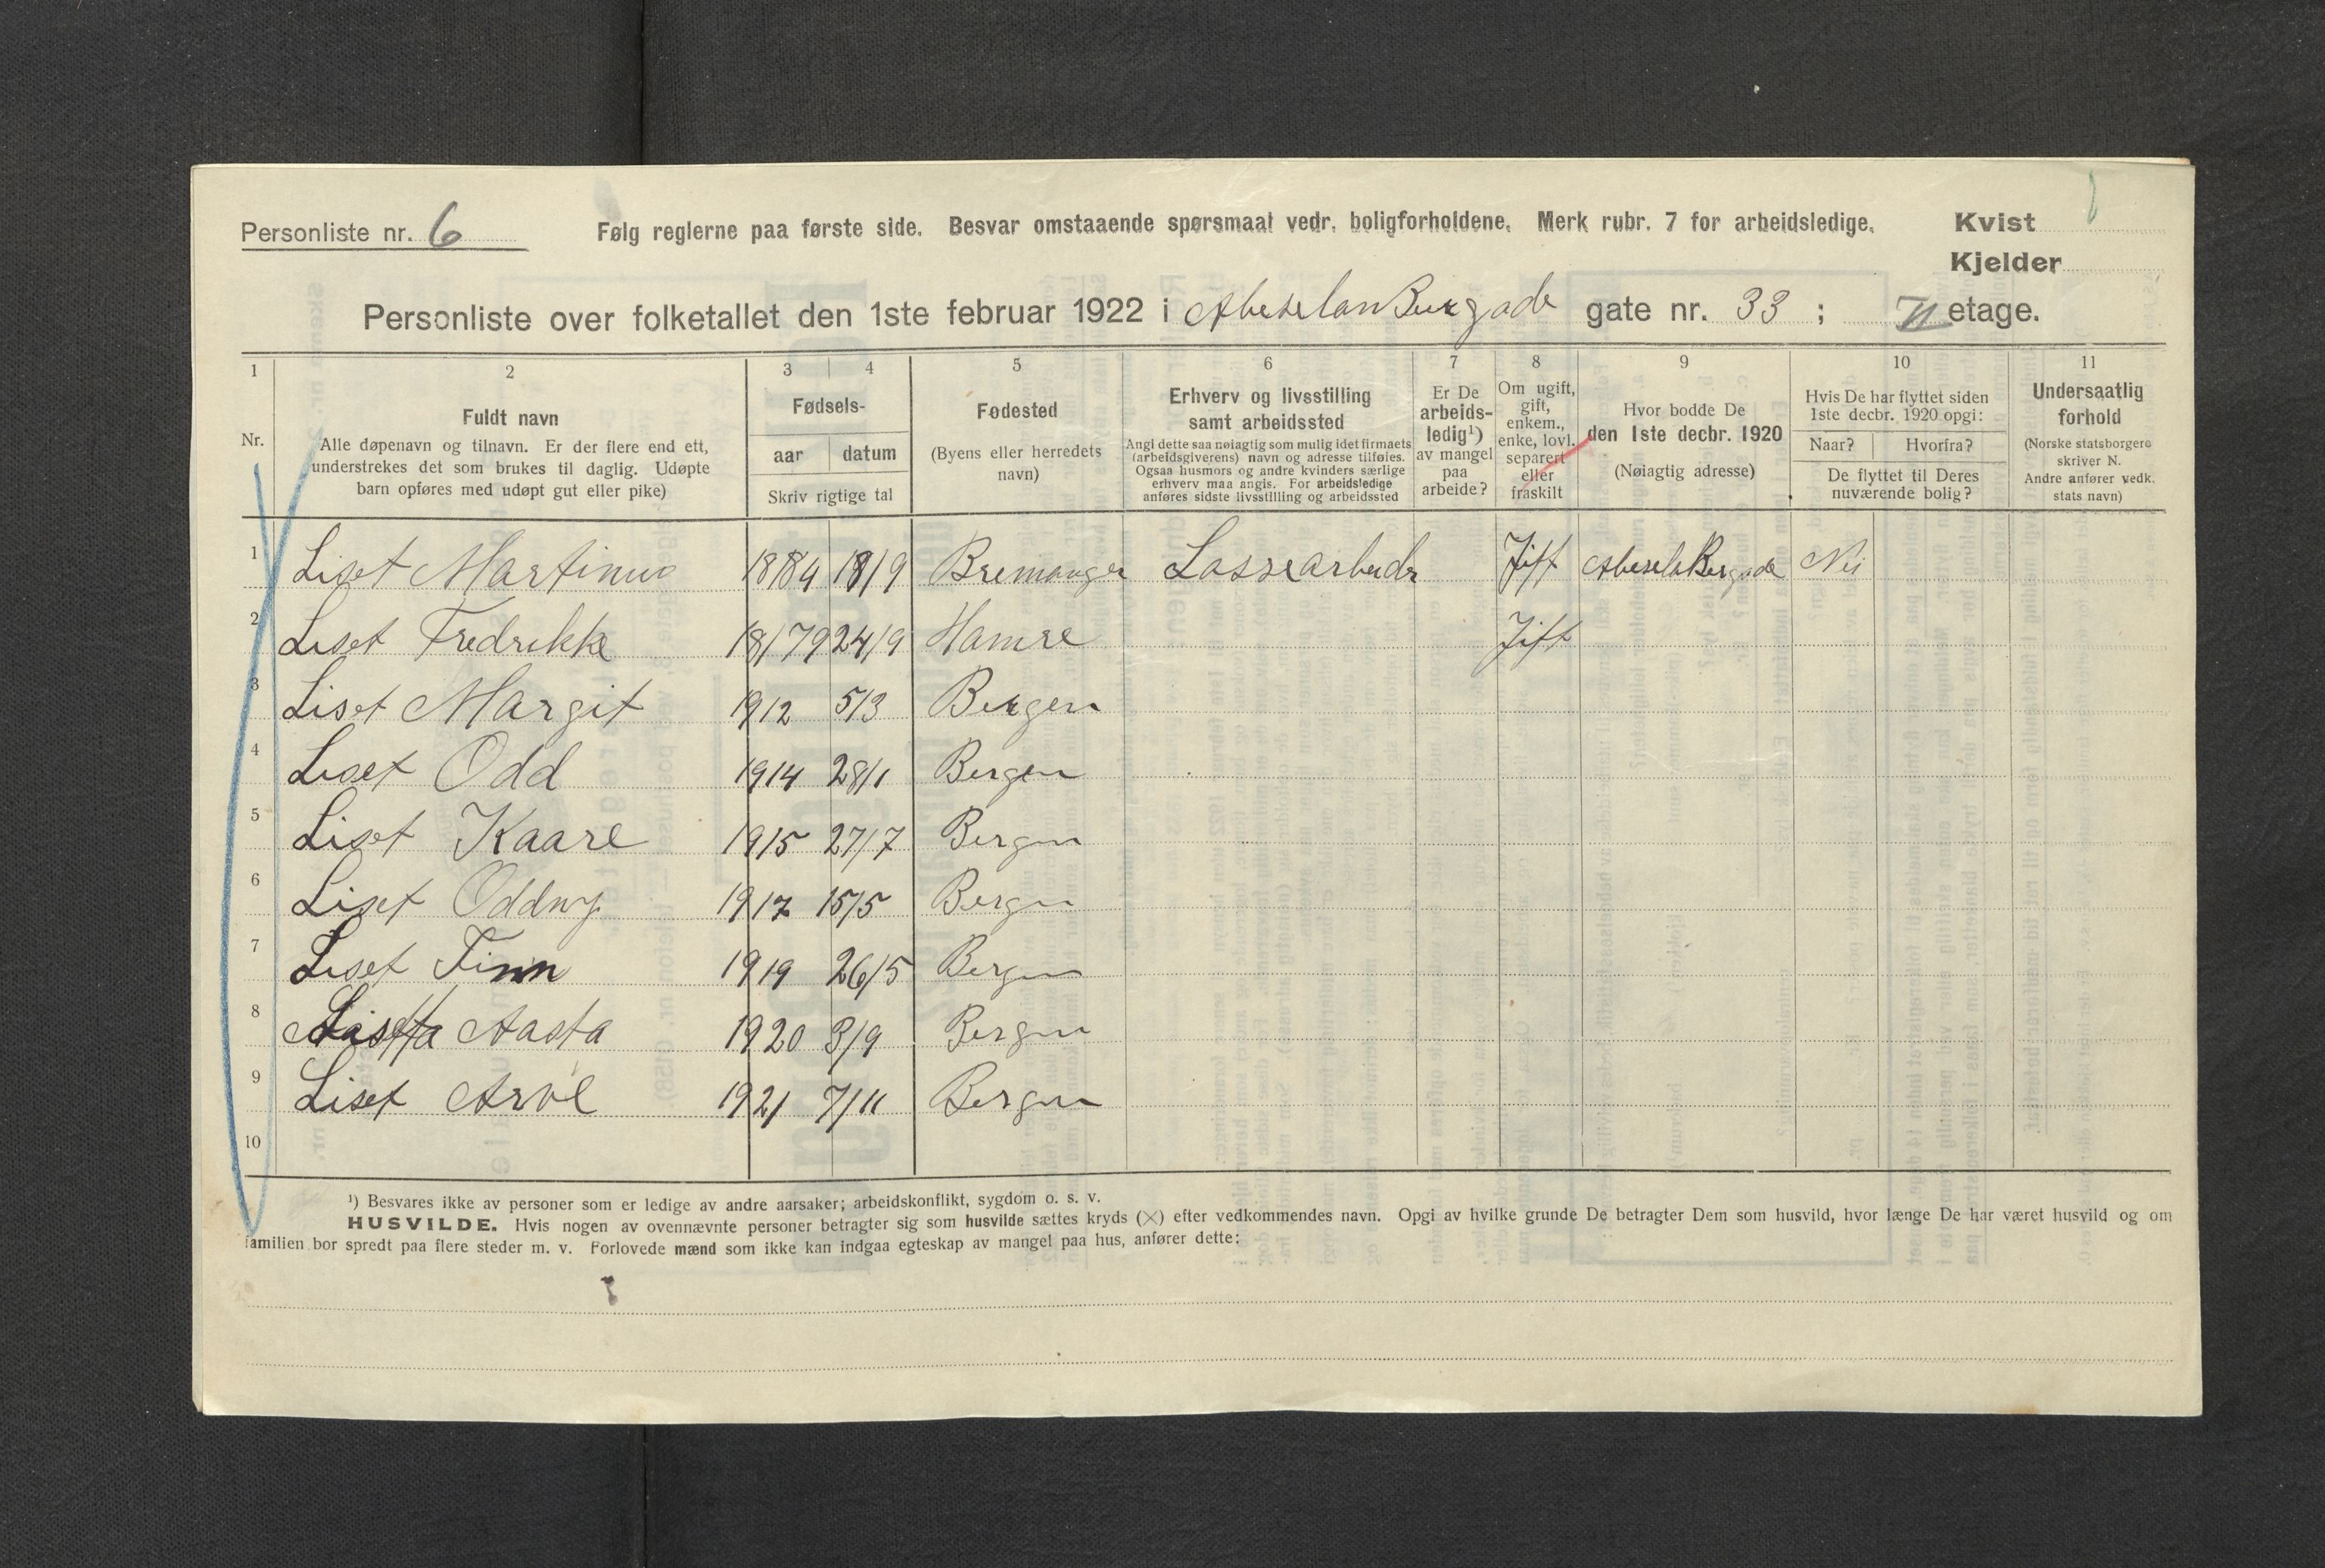 Personliste nr. 6
Følg reglerne paa første side. Besvar omstaaende spørsmaal vedr. boligforholdene. Merk rubr. 7 for arbeidsledige.
Kvist
Kjelder
Personliste over folketallet den 1ste februar 1922 i gate nr. 33 ; II etage.
1 2 3 4 5 6 7 8 9 10 11
Nr.
Fuldt navn
Alle døpenavn og tilnavn. Er der flere end ett,
understrekes det som brukes til daglig. Udøpte
barn opføres med udøpt gut eller pike)
Fødsels-
aar datum
Skriv rigtige tal
Fødested
(Byens eller herredets
navn)
Erhverv og livsstilling
samt arbeidssted
Angi dette saa nøiagtig som mulig idet firmaets
(arbeidsgiverens) navn og adresse tilføies.
Ogsaa husmors og andre kvinders særlige
erhverv maa angis. For arbeidsledige
anføres sidste livsstilling og arbeidssted
Er De
arbeids-
ledig¹)
av mangel
paa
arbeide?
Om ugift,
gift,
enkem.,
enke, lovl.
separert
eller
fraskilt
Hvor bodde De
den 1ste decbr. 1920
(Nøiagtig adresse)
Hvis De har flyttet siden
1ste decbr. 1920 opgi:
Naar? Hvorfra?
De flyttet til Deres
nuværende bolig?
Undersaatlig
forhold
(Norske statsborgere
skriver N.
Andre anfører vedk.
stats navn)
1 Liset Martinus 1884 18/9 Bremanger Lossearbeidr Jift Nei
2 Liset Fredrikke 1879 24/9 Hamre Jift
3 Liset Margit 1912 5/3 Bergen
4 Liset Odd 1914 28/1 Bergen
5 Liset Kaare 1915 27/7 Bergen
6 Liset Oddny 1917 15/5 Bergen
7 Liset Finn 1919 26/5 Bergen
8 Aasta 1920 3/9 Bergen
9 Liset Arve 1921 7/11 Bergen
10
¹) Besvares ikke av personer som er ledige av andre aarsaker; arbeidskonflikt, sygdom o. s. v.
HUSVILDE. Hvis nogen av ovennævnte personer betragter sig som husvilde sættes kryds (×) efter vedkommendes navn. Opgi av hvilke grunde De betragter Dem som husvild, hvor længe De har været husvild og om
familien bor spredt paa flere steder m. v. Forlovede mænd som ikke kan indgaa egteskap av mangel paa hus, anfører dette: